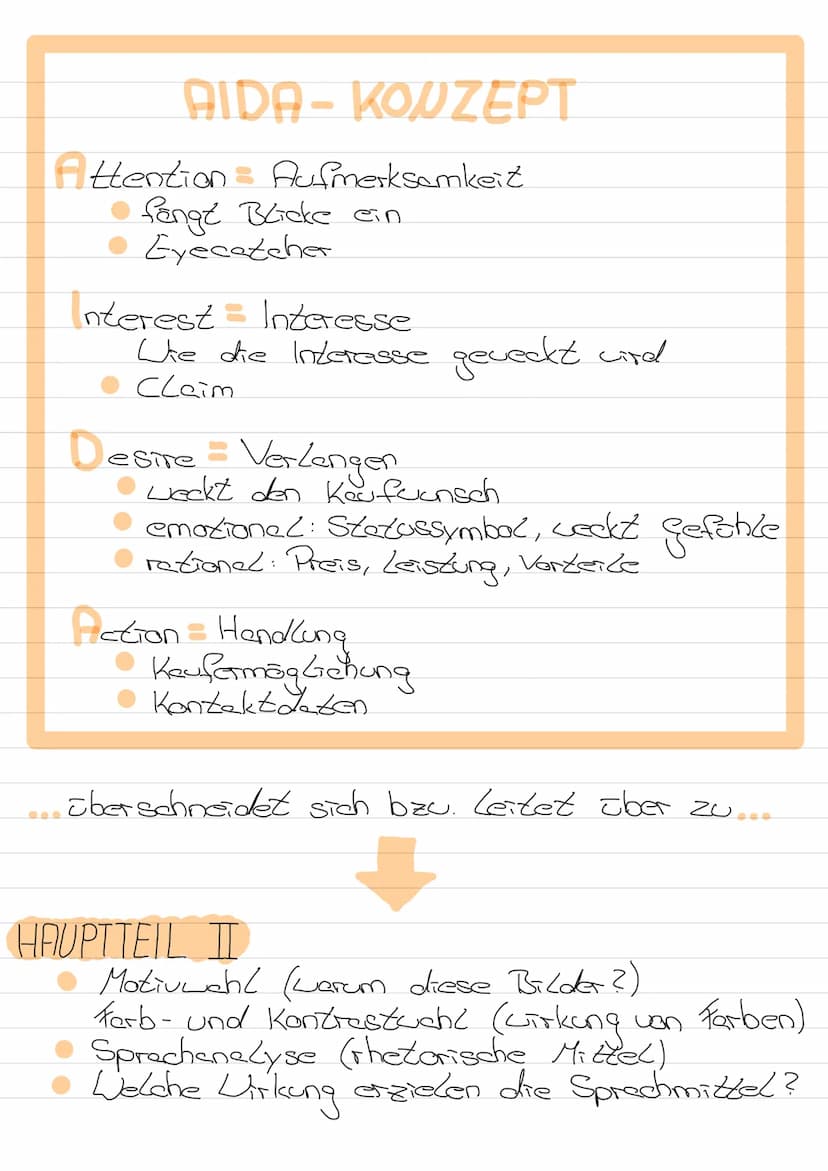 AIDA - KONZEPT
Attention = Aufmerksamkeit
fängt Blicke ein
Eyecatcher
Interest = Interesse
Wie die Interesse geweckt wird
Claim
Desire = Verlangen
weckt den Kaufwunsch
emotional: Statussymbol, weckt Gefühle
rational: Preis, Leistung, Vorteile
Action = Handlung
Kaufermöglichung
Kontaktdaten
... überschneidet sich bzw. leitet über zu ...
HAUPTTEIL II
Motivwahl (warum diese Bilder?)
Farb- und Kontrastwahl (Wirkung von Farben)
Sprachanalyse (rhetorische Mittel)
Welche Wirkung erzielen die Sprachmittel?